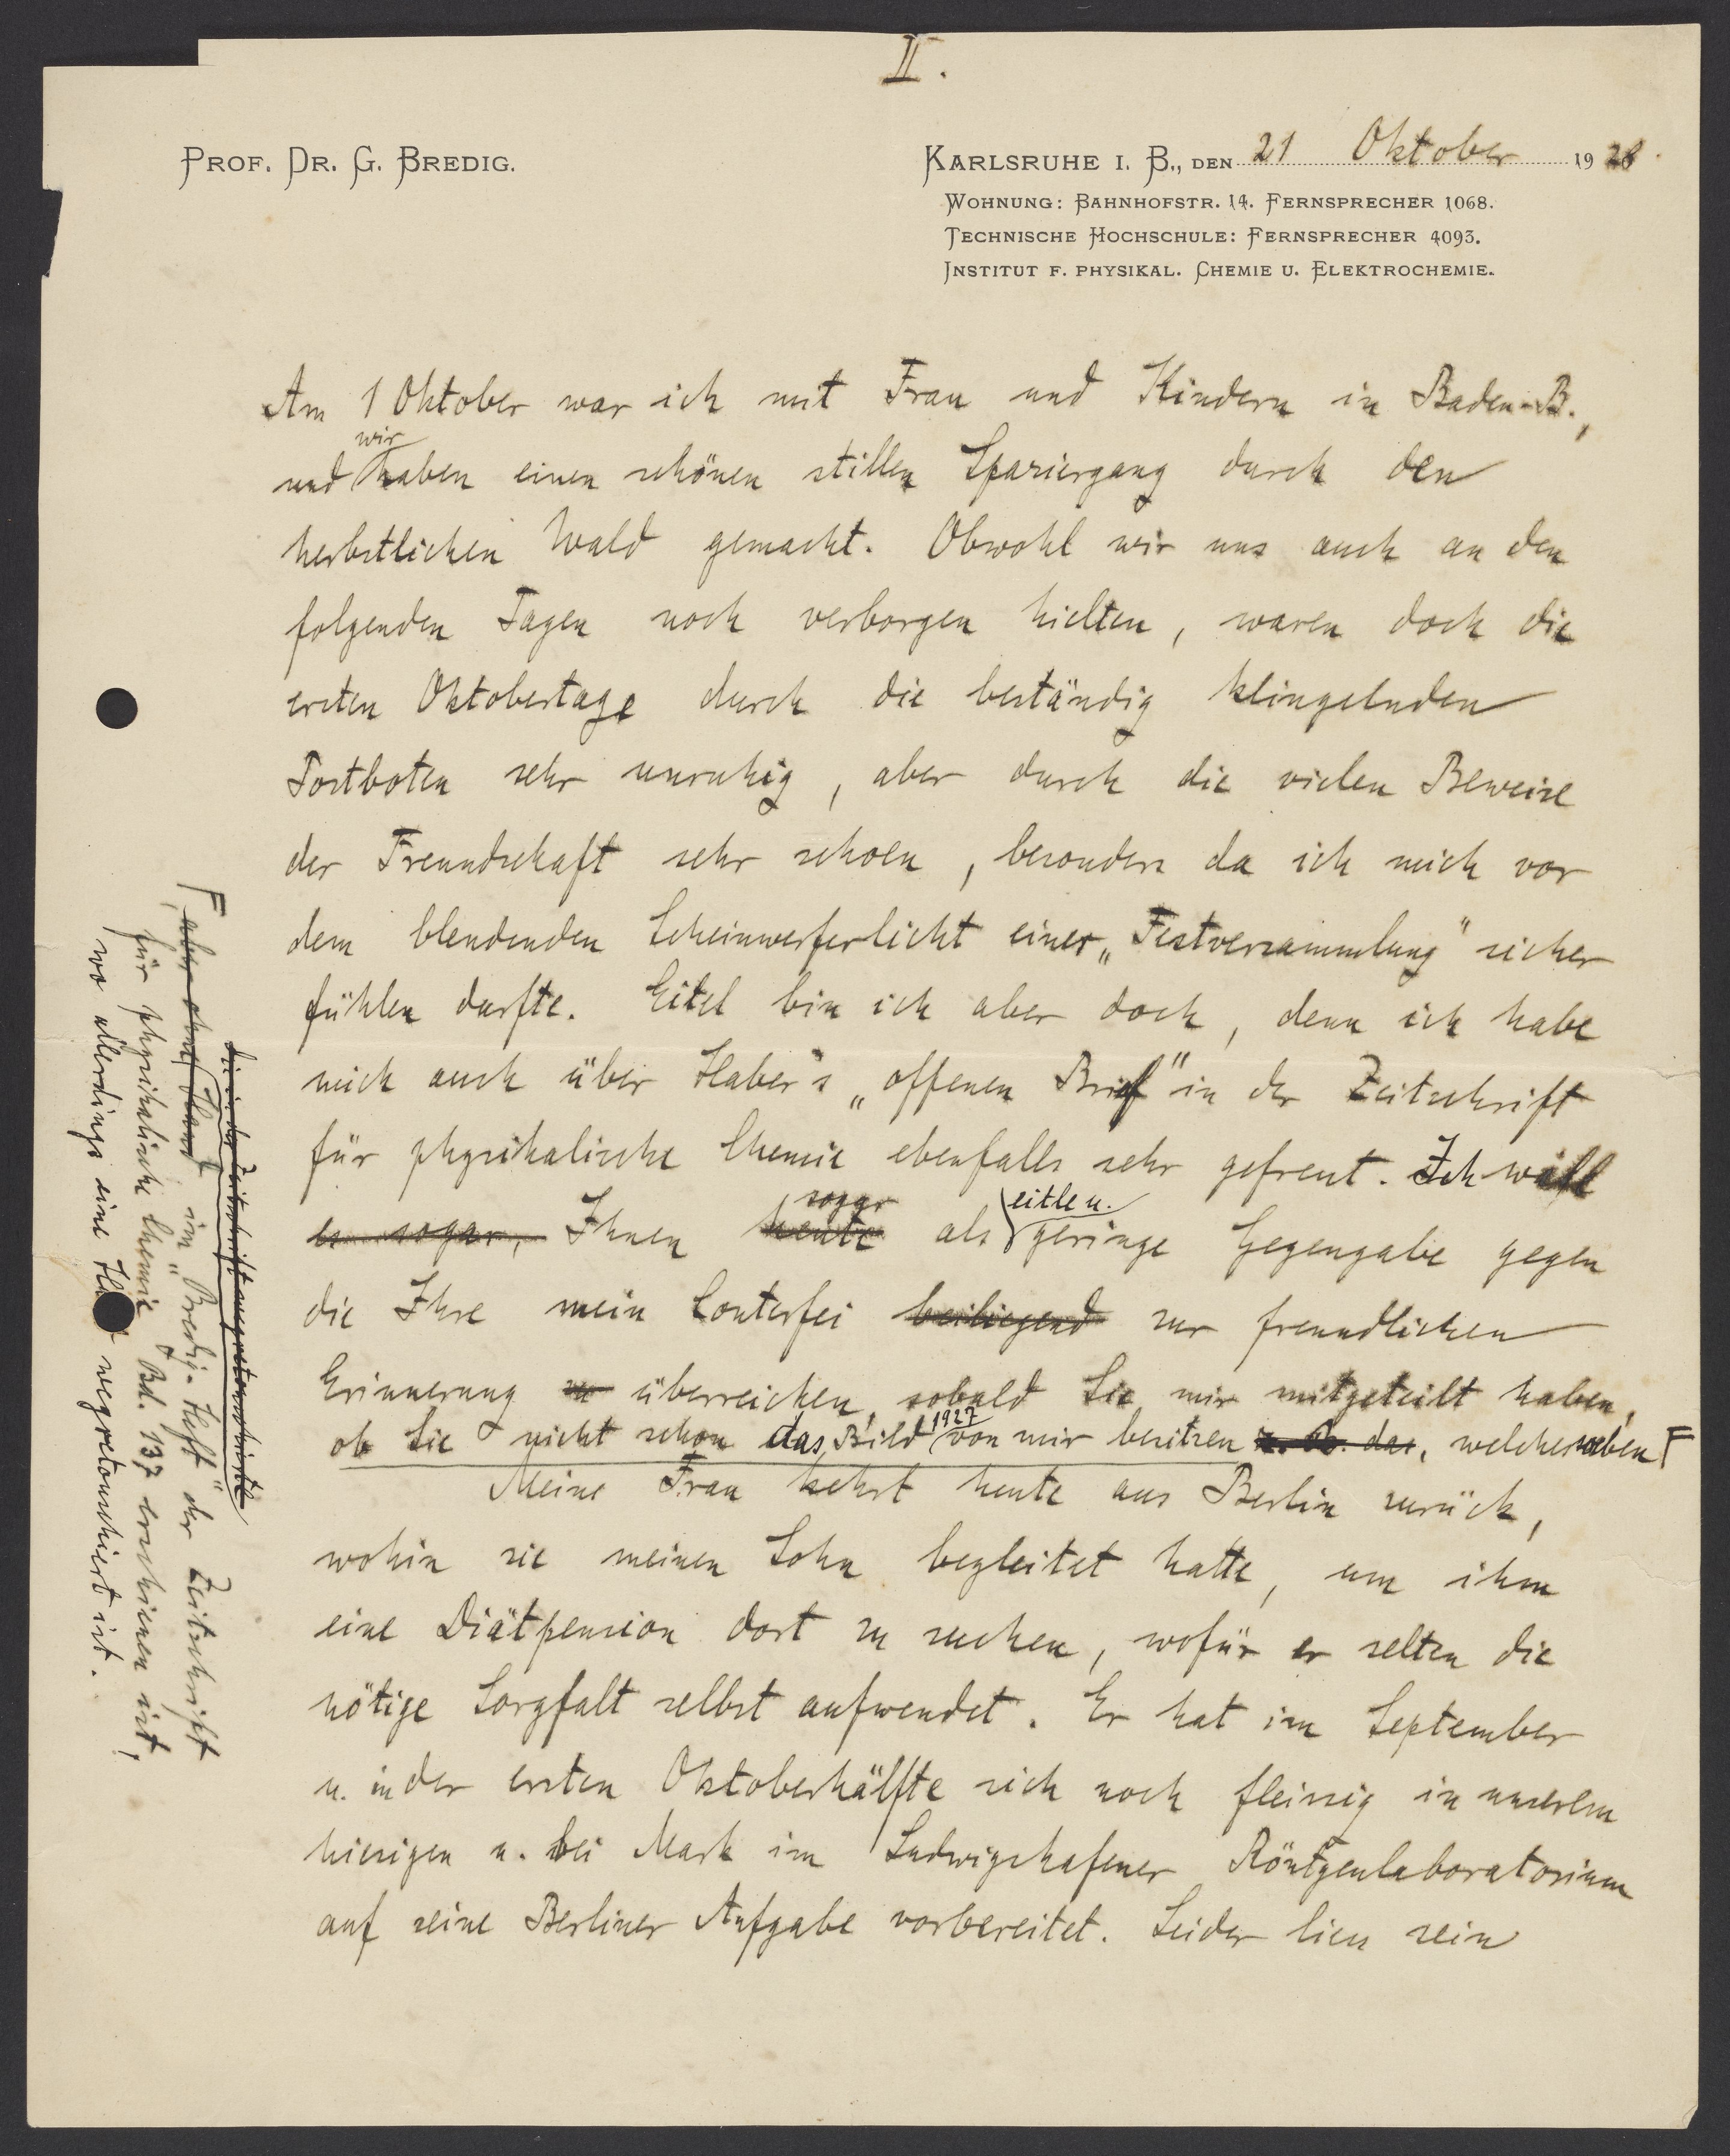 II.
PROF. DR. G. BREDIG.
KARLSRUHE I. B., DEN 21 Oktober 1928.
WOHNUNG: BAHNHOFSTR. 14. FERNSPRECHER 1068.
TECHNISCHE HOCHSCHULE: FERNSPRECHER 4093.
INSTITUT F. PHYSIKAL. CHEMIE U. ELEKTROCHEMIE.
Am 1 Oktober war ich mit Frau und Kindern in Baden-B.,
und wir haben einen schönen stillen Spaziergang durch den
herbstlichen Wald gemacht. Obwohl wir uns auch an den
folgenden Tagen noch verborgen hielten, waren doch die
ersten Oktobertage durch die beständig klingelnden
Postboten sehr unruhig, aber durch die vielen Beweise
der Freundschaft sehr schoen, besonders da ich mich vor
dem blendenden Scheinwerferlicht einer „Festversammlung" sicher
fühlen durfte. Eitel bin ich aber doch, denn ich habe
mich auch über Haber's „offenen Brief" in der Zeitschrift
für physikalische Chemie ebenfalls sehr gefreut. Ich will
es sogar, Ihnen heute sogar als eitle u. geringe Gegengabe gegen
die Ihre mein Conterfei beiliegend zur freundlichen
Erinnerung zu überreichen, sobald Sie mir mitgeteilt haben,
ob Sie nicht schon das Bild 1927 von mir besitzen z. B. das, welches neben F
Meine Frau kehrt heute aus Berlin zurück,
wohin sie meinen Sohn begleitet hatte, um ihm
eine Diätpension dort zu suchen, wofür er selten die
nötige Sorgfalt selbst aufwendet. Er hat im September
u. in der ersten Oktoberhälfte sich noch fleissig in unserem
hiesigen u. bei Mark im Ludwigshafener Röntgenlaboratorium
auf seine Berliner Aufgabe vorbereitet. Leider liess sein
die in der Zeitschrift wegretouchirte
F aber ohne Hand im „Bredig-Heft" der Zeitschrift
für physikalische Chemie Bd. 137 erschienen ist,
wo allerdings eine wegretouchiert ist.